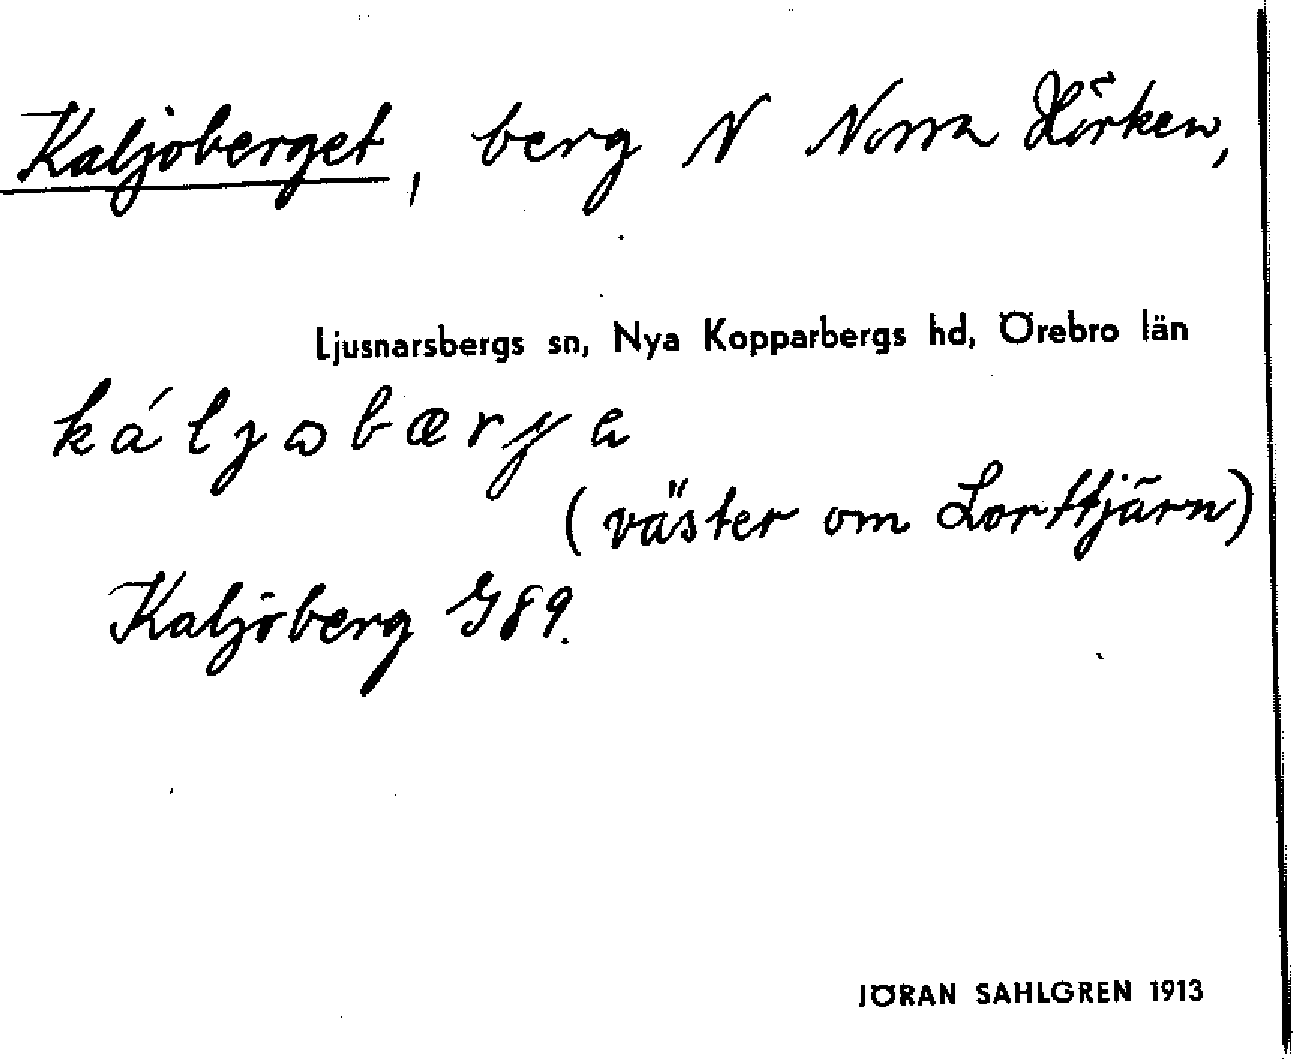 Kaljoberget, berg N Norra Hörken,
Ljusnarsbergs sn, Nya Kopparbergs hd, Örebro län
káljωbærga
(väster om Lorttjärn)
Kaljöberg G89.
JÖRAN SAHLGREN 1913